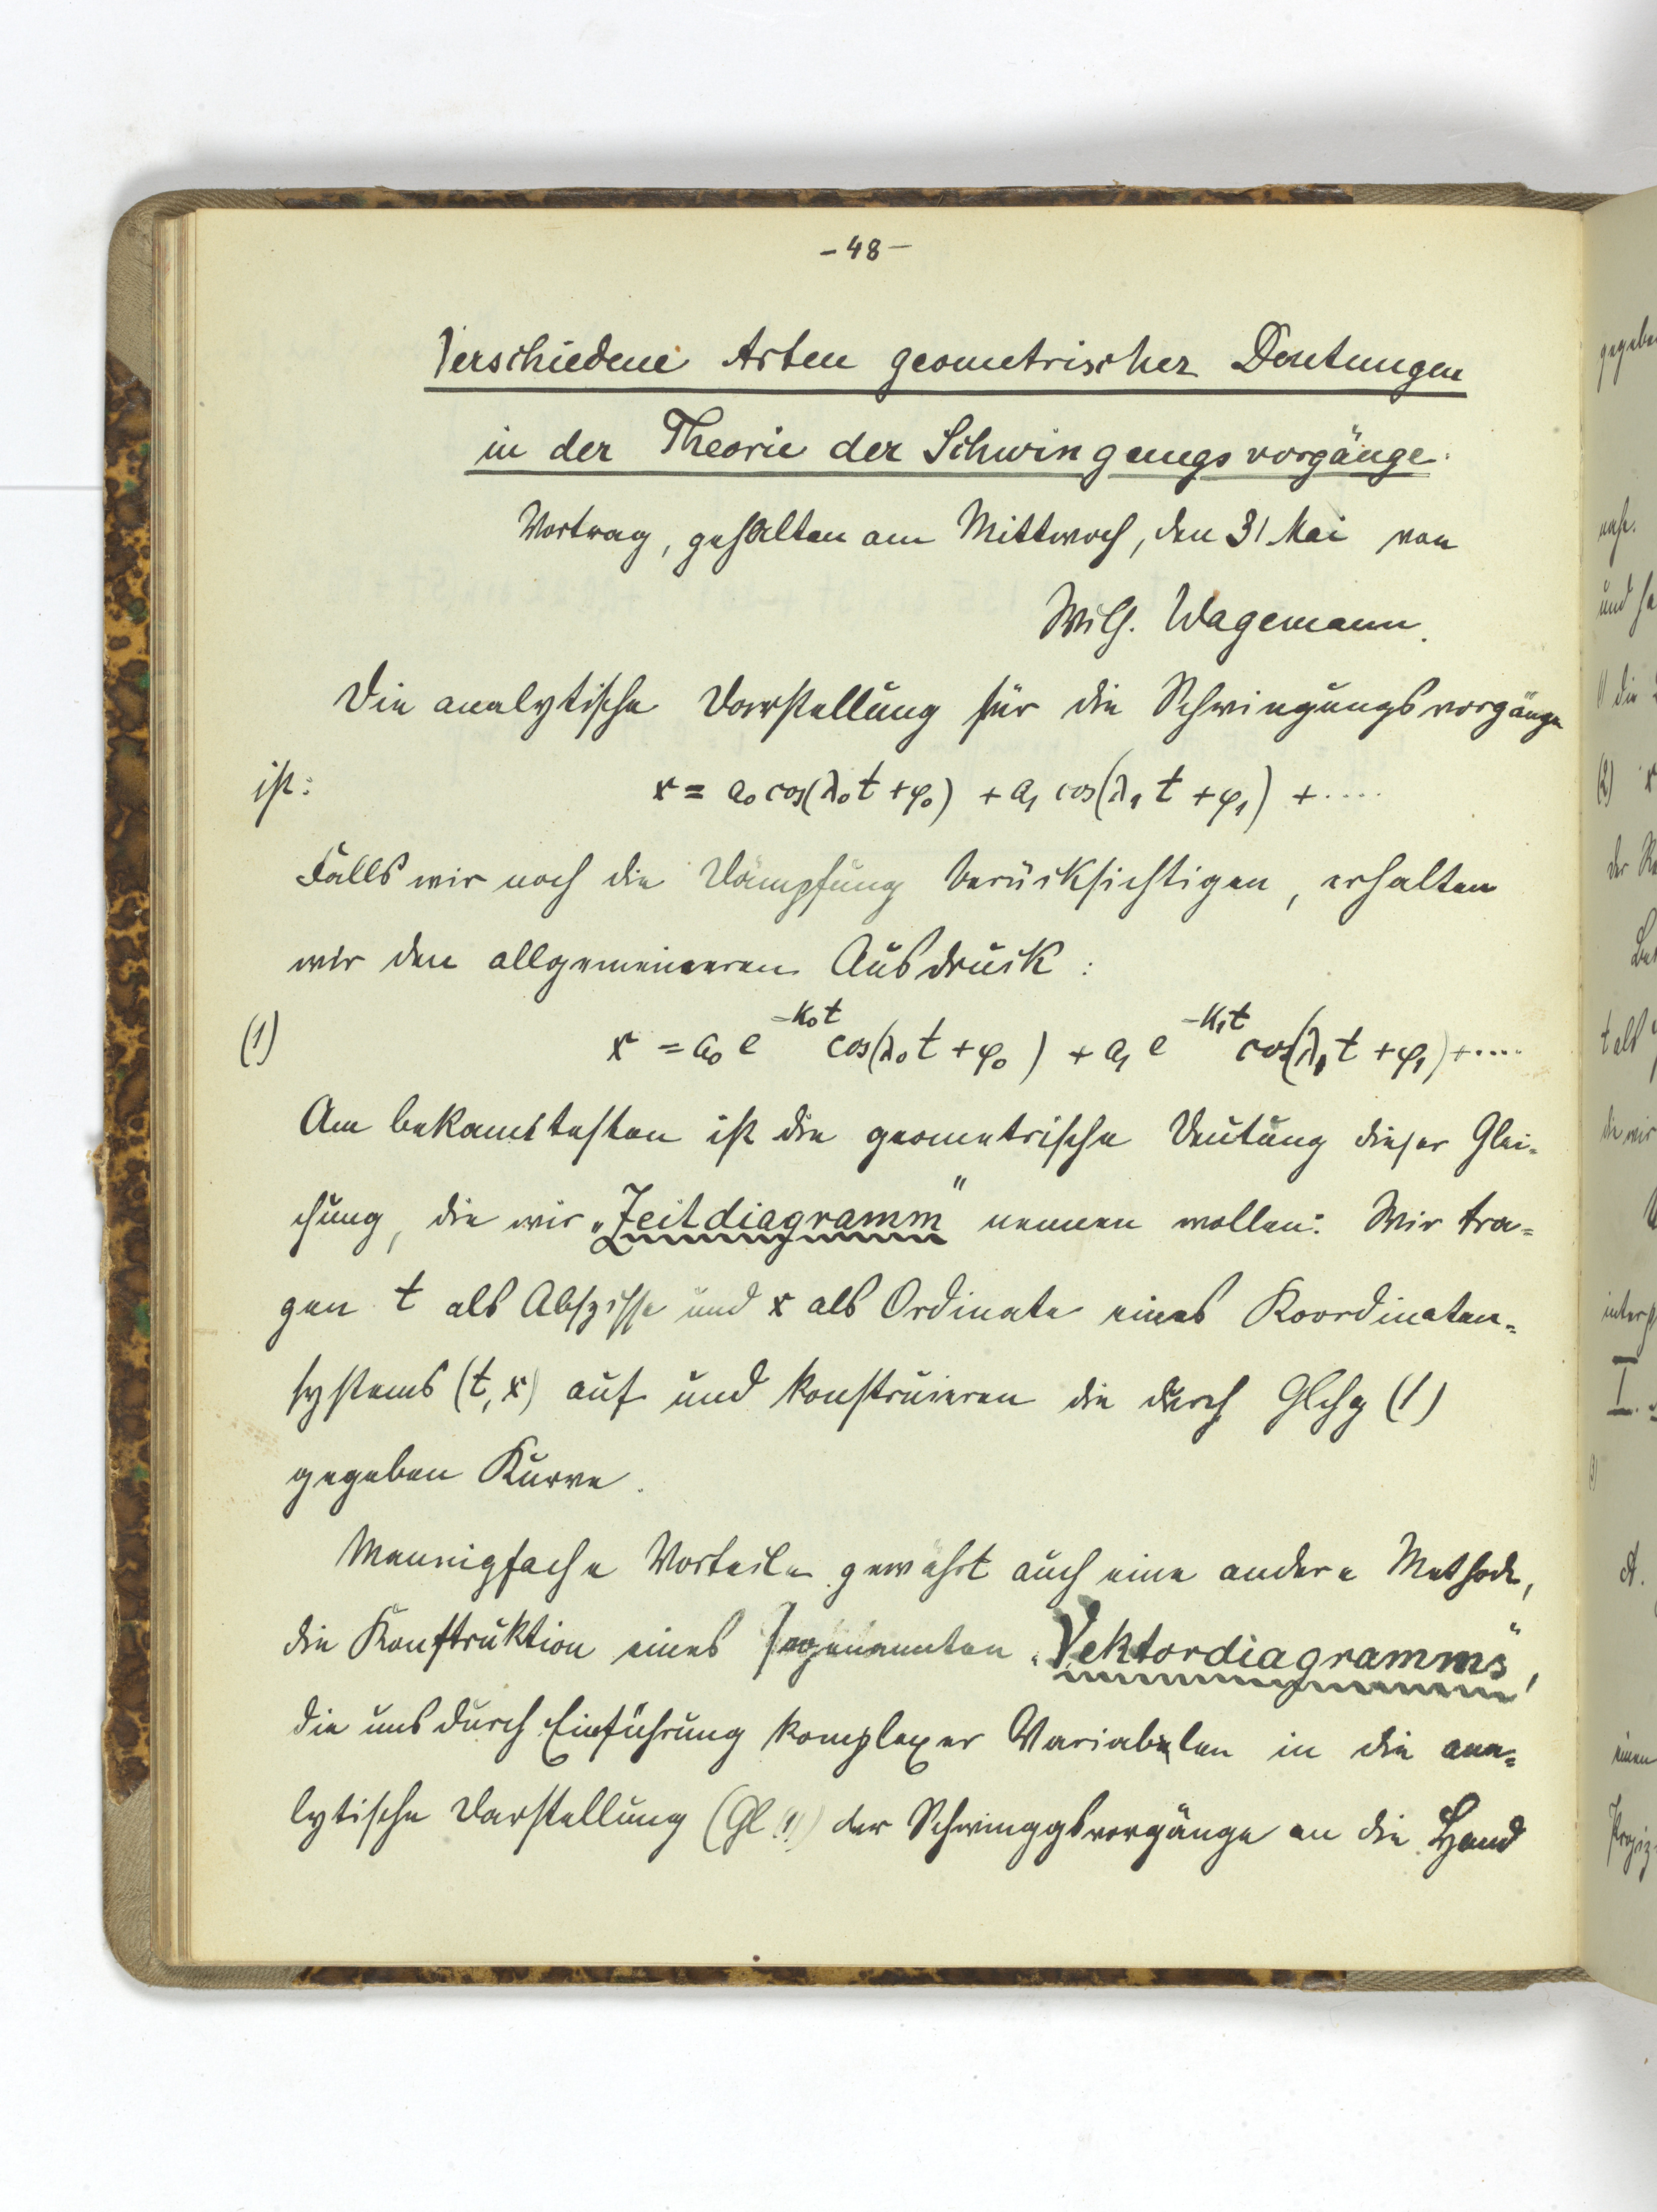 - 48 -
Verschiedene Arten geometrischer Deutungen
in der Theorie der Schwingungsvorgänge.
Vortrag, gehalten am Mittwoch, den 31 Mai von
Wilh. Wagemann.
Die analytische Darstellung für die Schwingungsvorgänge
ist: x = a₀ cos(λ₀t + φ₀) + a₁ cos(λ₁t + φ₁) + ....
Falls wir noch die Dämpfung berücksichtigen, erhalten
wir den allgemeineren Ausdruck:
(1) x = a₀ e^{-κ₀t} cos(λ₀t + φ₀) + a₁ e^{-κ₁t} cos(λ₁t + φ₁) + ....
Am bekanntesten ist die geometrische Deutung dieser Glei-
chung, die wir „Zeitdiagramm" nennen wollen: Wir tra-
gen t als Abszisse und x als Ordinate eines Koordinaten-
systems (t, x) auf und konstruieren die durch Glchg (1)
gegeben Kurve.
Mannigfache Vorteile gewährt auch eine andere Methode,
die Konstruktion eines sogenannten „Vektordiagramms",
die uns durch Einführung komplexer Variabelen in die ana-
lytische Darstellung (Gl (1)) der Schwinggsvorgänge an die Hand
gegeben
und
die
(2) x
der
t als
die wir
I.
(3)
einen